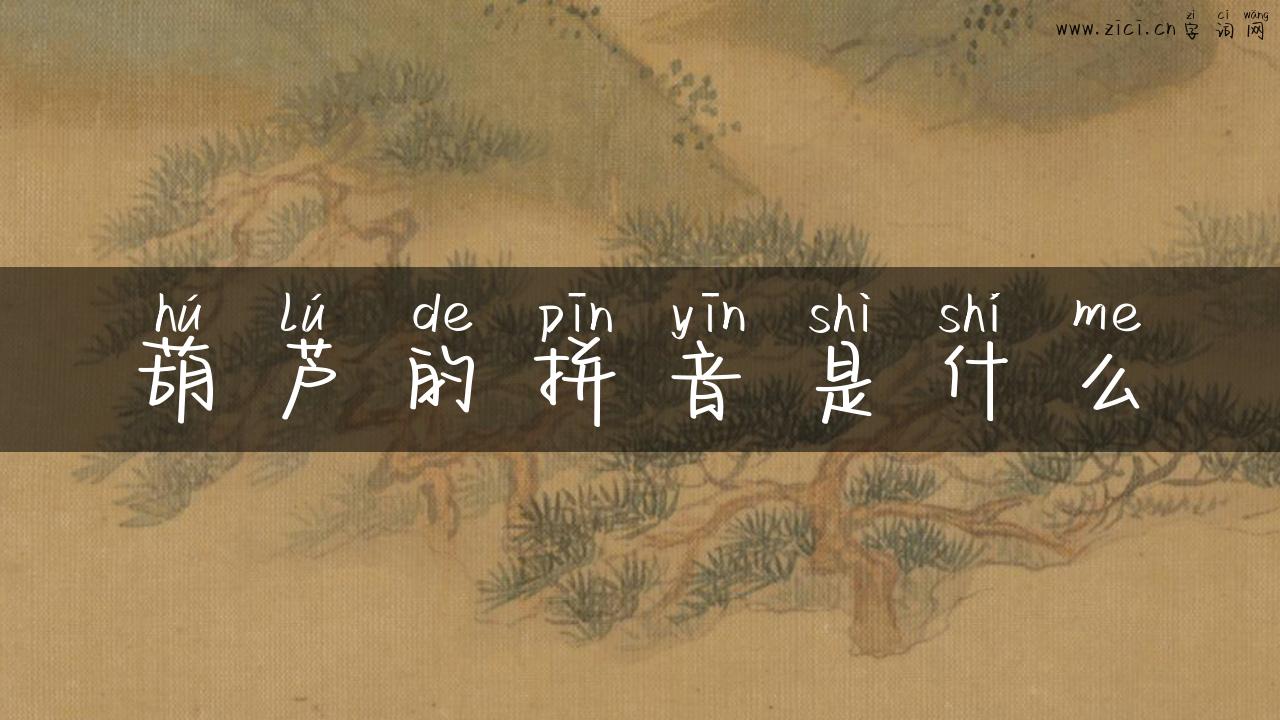 zì cí wǎng
www.zīcī.cn 字词网
hú lú de pīn yīn shì shí me
葫芦的拼音是什么